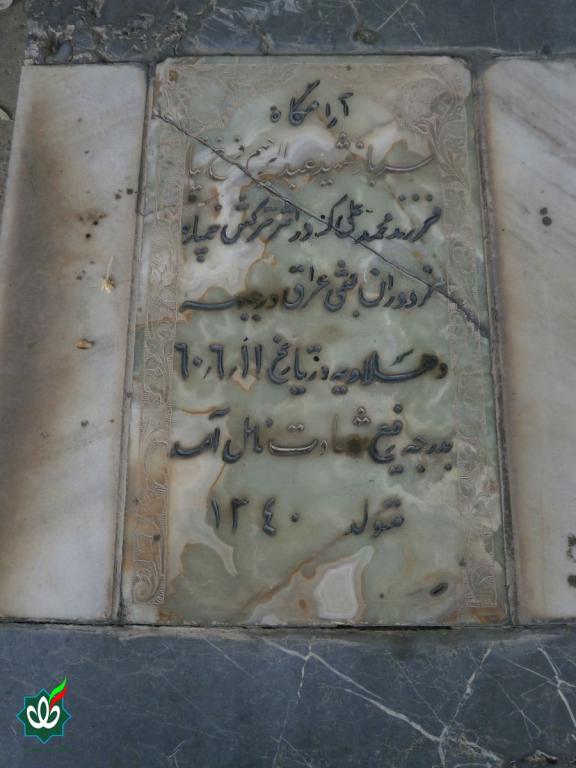 آرامگاه
سرباز شهید عبدالرحیم فرخ نیا
فرزند محمد علی که در اثر ترکش خمپاره
مزدوران بعثی عراق در جبهه
دهلاویه در تاریخ ۱۱/۶/۶۰
بدرجه رفیع شهادت نائل آمد
متولد ۱۳۴۰